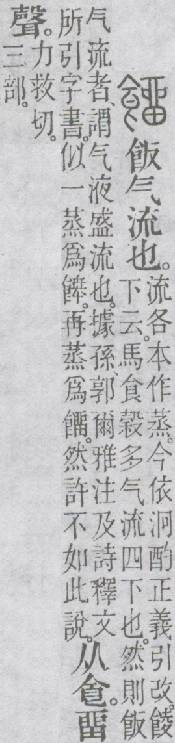 餾飯气流也。
流各本作蒸。今依泂酌正義引改。䬋
下云。馬食穀多气流四下也。然則飯
气流者、謂气液盛流也。據孫、郭爾雅注及詩釋文
所引字書。似一蒸爲餴。再蒸爲餾。然許不如此說。
从食。畱
聲。
力救切。
三部。